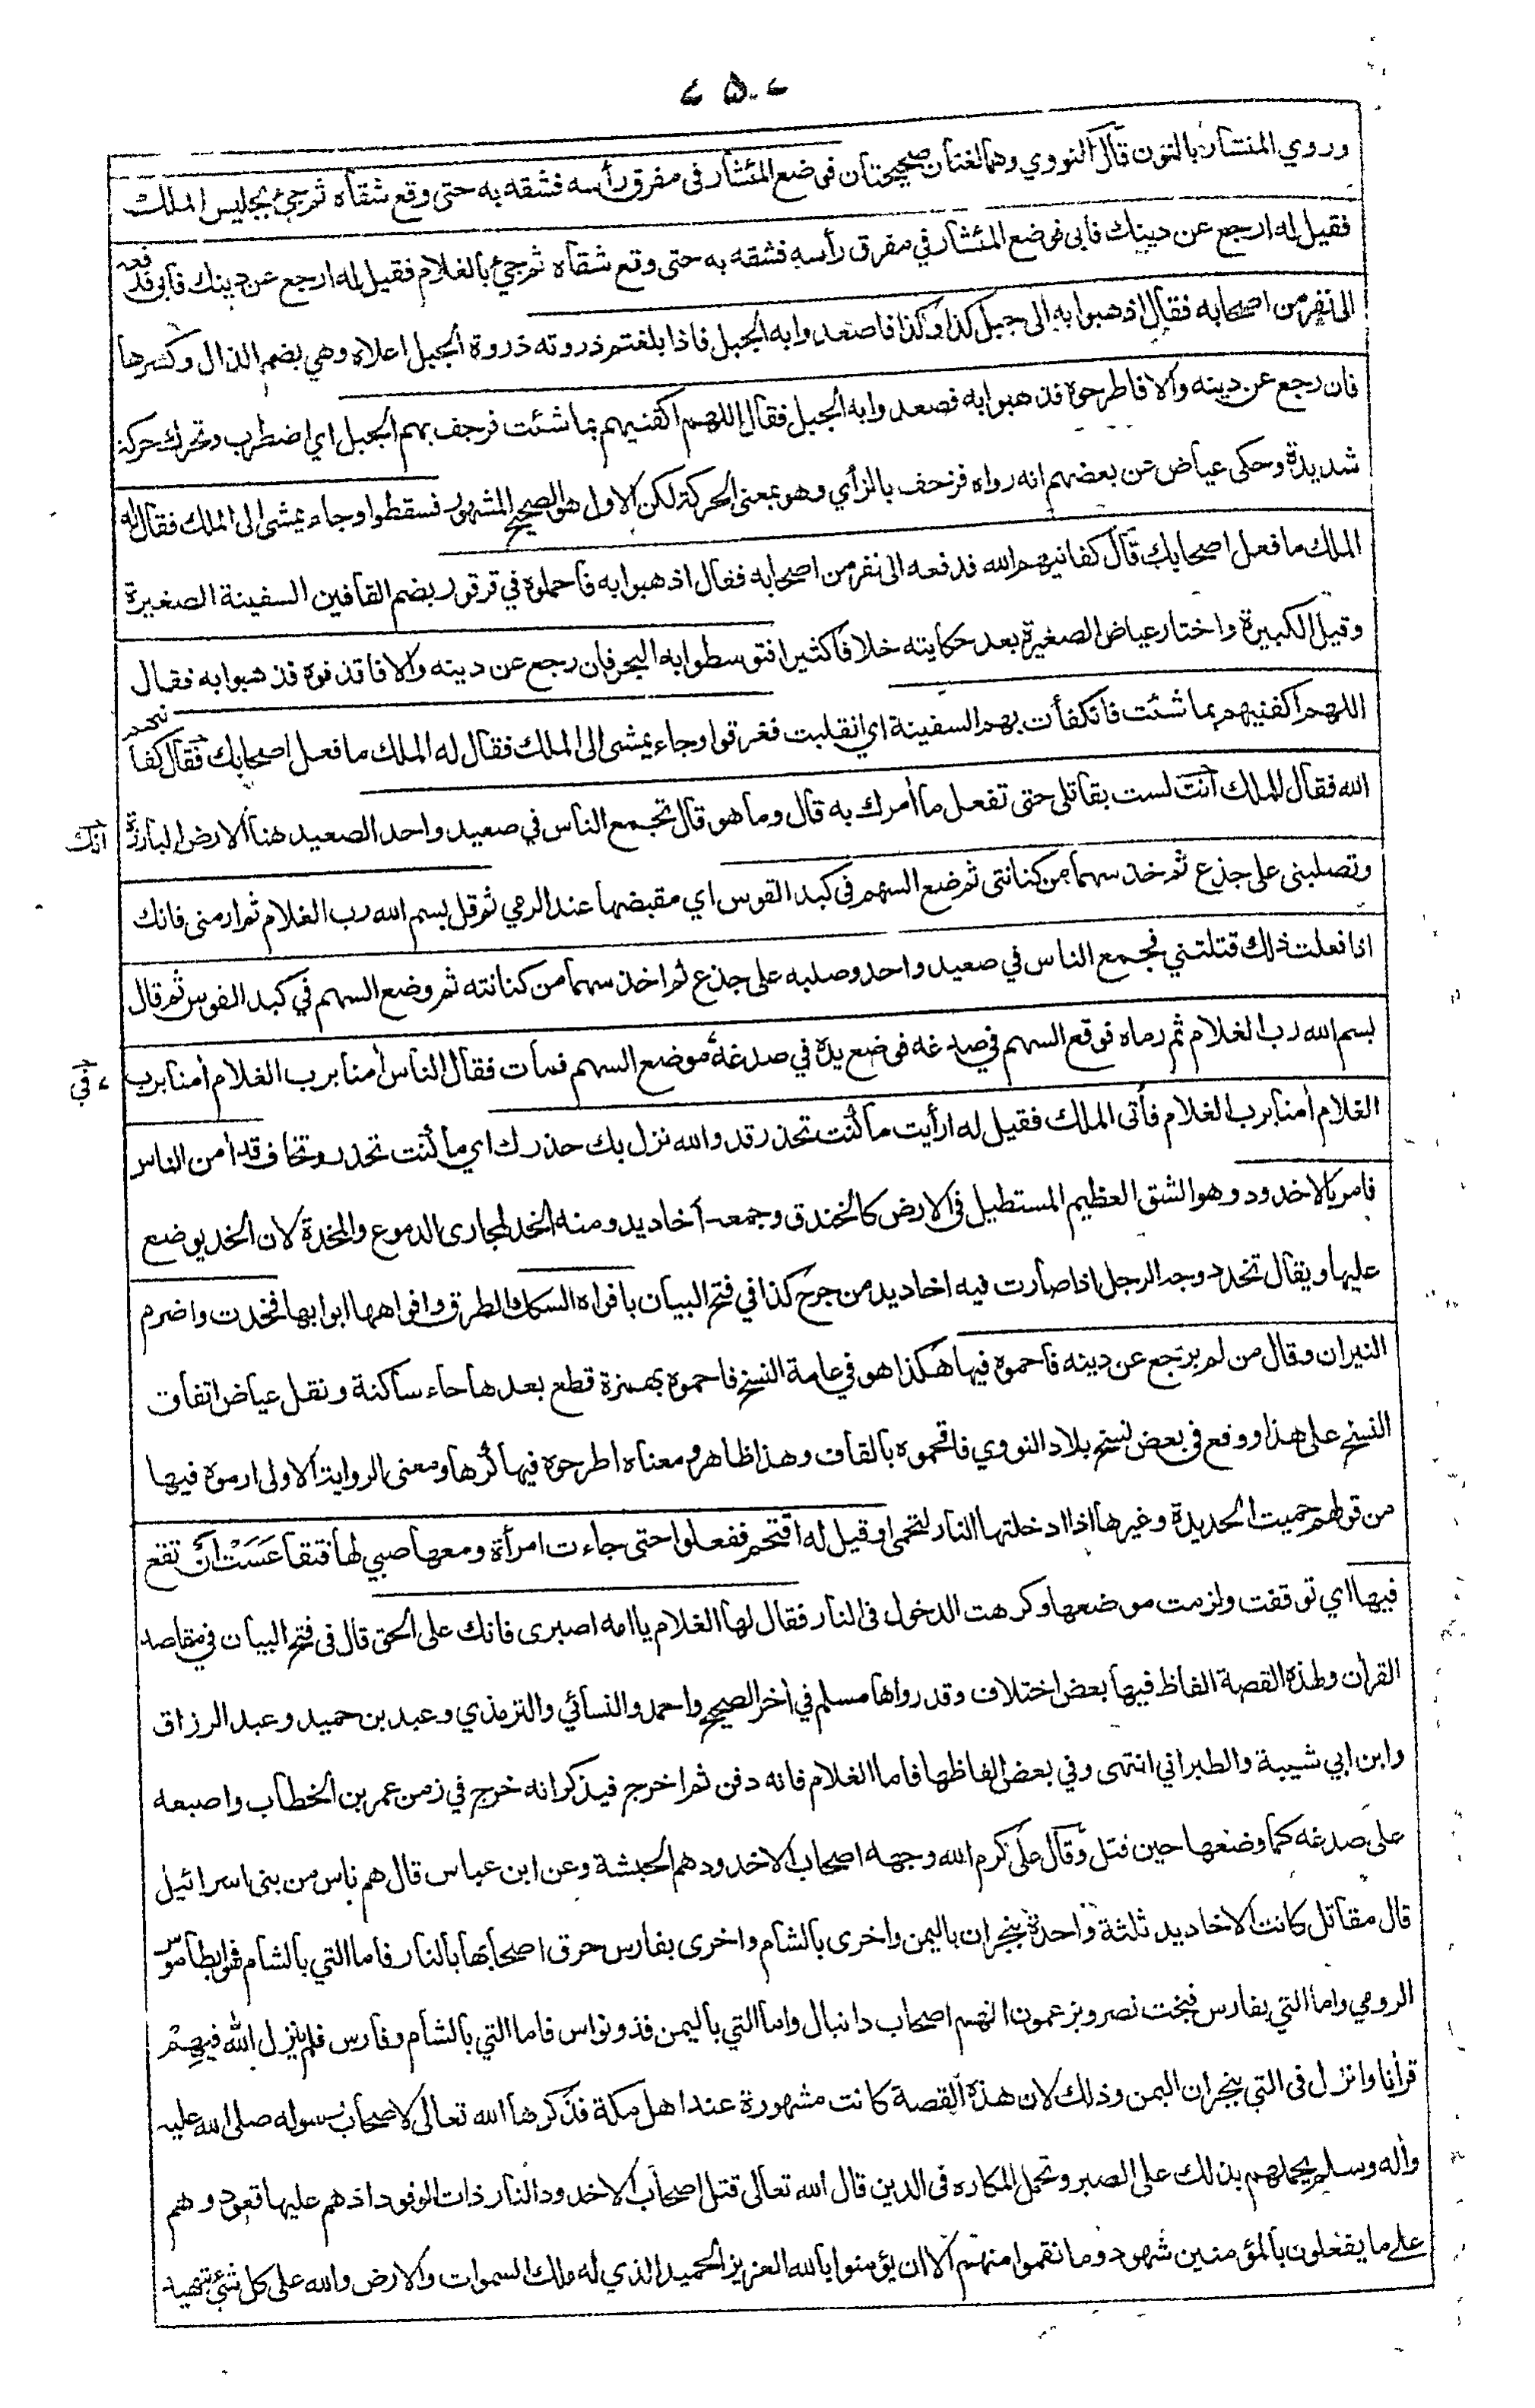 ٥٠٧
وروي المنشار بالنون قال النووي وهما لغتان صحيحتان فوضع المئشار في مفرق رأسه فشقه به حتى وقع شقاه ثم جيئ بجليس الملك
فقيل له ارجع عن دينك فابى فوضع المئشار في مفرق رأسه فشقه به حتى وقع شقاه ثم جيئ بالغلام فقيل له ارجع عن دينك فابى فدفعه
الى نفر من اصحابه فقال اذهبوا به الى جبل كذا وكذا فاصعدوا به الجبل فاذا بلغتم ذروته ذروة الجبل اعلاه وهي بضم الذال وكسرها
فان رجع عن دينه والا فاطرحوه فذهبوا به فصعدوا به الجبل فقال اللهم اكفنيهم بما شئت فرجف بهم الجبل اي اضطرب وتحرك حركة
شديدة وحكى عياض عن بعضهم انه رواه فزحف بالزأي وهو بمعنى الحركة لكن الاول هو الصحيح المشهور فسقطوا وجاء يمشي الى الملك فقال له
الملك ما فعل اصحابك قال كفانيهم الله فدفعه الى نفر من اصحابه فقال اذهبوا به فاحملوه في قرقور بضم القافين السفينة الصغيرة
وقيل الكبيرة واختار عياض الصغيرة بعد حكايته خلافا كثيرا فتوسطوا به البحر فان رجع عن دينه والا فاقذفوه فذهبوا به فقال
اللهم اكفنيهم بما شئت فانكفأت بهم السفينة اي انقلبت فغرقوا وجاء يمشي الى الملك فقال له الملك ما فعل اصحابك فقال كفانيهم
الله فقال للملك انت لست بقاتلي حتى تفعل ما أمرك به قال وما هو قال تجمع الناس في صعيد واحد الصعيد هنا الارض البارزة
انك
وتصلبني على جذع ثم خذ سهما من كنانتي ثم ضع السهم في كبد القوس اي مقبضها عند الرمي ثم قل بسم الله رب الغلام ثم ارمني فانك
اذا فعلت ذلك قتلتني فجمع الناس في صعيد واحد وصلبه على جذع ثم اخذ سهما من كنانته ثم وضع السهم في كبد القوس ثم قال
بسم الله رب الغلام ثم رماه فوقع السهم في صدغه فوضع يده في صدغه موضع السهم فمات فقال الناس أمنا برب الغلام أمنا برب
في
الغلام أمنا برب الغلام فأتى الملك فقيل له ارأيت ما كنت تحذر قد والله نزل بك حذرك اي ما كنت تحذر وتخاف قد أمن الناس
فامر بالاخدود وهو الشق العظيم المستطيل في الارض كالخندق وجمعه أخاديد ومنه الخد لمجاري الدموع والمخدة لان الخد يوضع
عليها ويقال تخدد وجه الرجل اذا صارت فيه اخاديد من جرح كذا في فتح البيان بافواه السكك والطرق وافواهها ابوابها فخدت واضرم
النيران وقال من لم يرجع عن دينه فاحموه فيها هكذا هو في عامة النسخ فاحموه بهمزة قطع بعدها حاء ساكنة ونقل عياض اتفاق
النسخ على هذا ووقع في بعض نسخ بلاد النووي فاقحموه بالقاف وهذا ظاهر ومعناه اطرحوه فيها كرها ومعنى الرواية الاولى ارموه فيها
من قولهم حميت الحديدة وغيرها اذا ادخلتها النار لتحمى او قيل له اقتحم ففعلوا حتى جاءت امرأة ومعها صبي لها فتقاعست ان تقع
فيها اي توقفت ولزمت موضعها وكرهت الدخول في النار فقال لها الغلام يا امه اصبري فانك على الحق قال في فتح البيان في مقاصد
القرأن ولهذه القصة الفاظ فيها بعض اختلاف وقد رواها مسلم في أخر الصحيح واحمد والنسائي والترمذي وعبد بن حميد وعبد الرزاق
وابن ابي شيبة والطبراني انتهى وفي بعض الفاظها فاما الغلام فانه دفن ثم اخرج فيذكر انه خرج في زمن عمر بن الخطاب واصبعه
على صدغه كما وضعها حين قتل وقال علي كرم الله وجهه اصحاب الاخدود هم الحبشة وعن ابن عباس قال هم ناس من بني اسرائيل
قال مقاتل كانت الاخاديد ثلثة واحدة بنجران باليمن واخرى بالشام واخرى بفارس حرق اصحابها بالنار فاما التي بالشام فهو ابطاموس
الرومي واما التي بفارس فبخت نصر ويزعمون انهم اصحاب دانيال واما التي باليمن فذو نواس فاما التي بالشام وفارس فلم ينزل الله فيهم
قرأنا وانزل في التي بنجران اليمن وذلك لان هذه القصة كانت مشهورة عند اهل مكة فذكرها الله تعالى لاصحاب رسوله صلى الله عليه
وأله وسلم يحملهم بذلك على الصبر وتحمل المكاره في الدين قال الله تعالى قتل اصحاب الاخدود النار ذات الوقود اذ هم عليها قعود وهم
على ما يفعلون بالمؤمنين شهود وما نقموا منهم الا ان يؤمنوا بالله العزيز الحميد الذي له ملك السموات والارض والله على كل شيئ شهيد